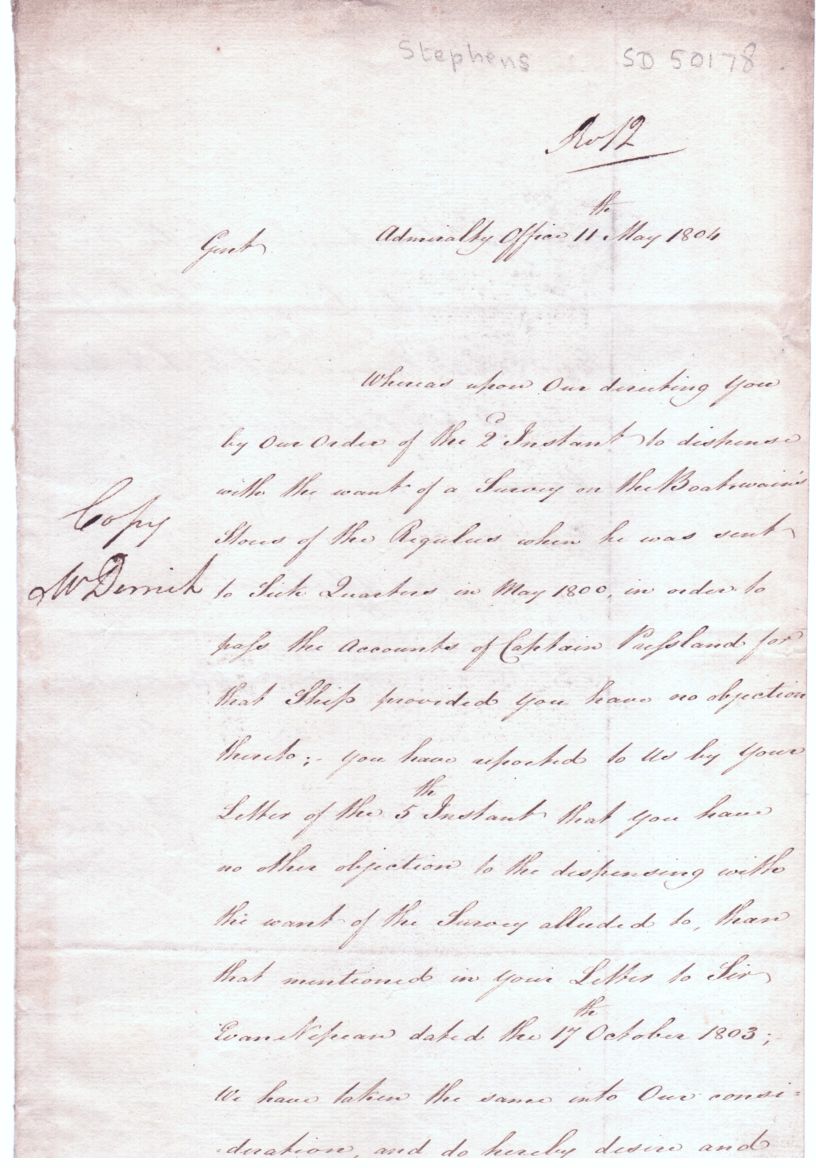 Stephens SD 50178
Rv 12
Gent Admiralty Office 11th May 1804
Whereas upon Our directing you
by Our Order of the 2d Instant to dispense
with the want of a Survey on the Boatswain's
Stores of the Regulus when he was sent
Copy
to Sick Quarters in May 1800, in order to
pass the Accounts of Captain Pressland for
that Ship provided you have no objection
thereto; you have reported to Us by your
Letter of the 5th Instant that you have
no other objection to the dispensing with
the want of the Survey alluded to, than
that mentioned in your Letter to Sir
Evan Nepean dated the 17th October 1803;
We have taken the same into Our consi-
deration, and do hereby desire and